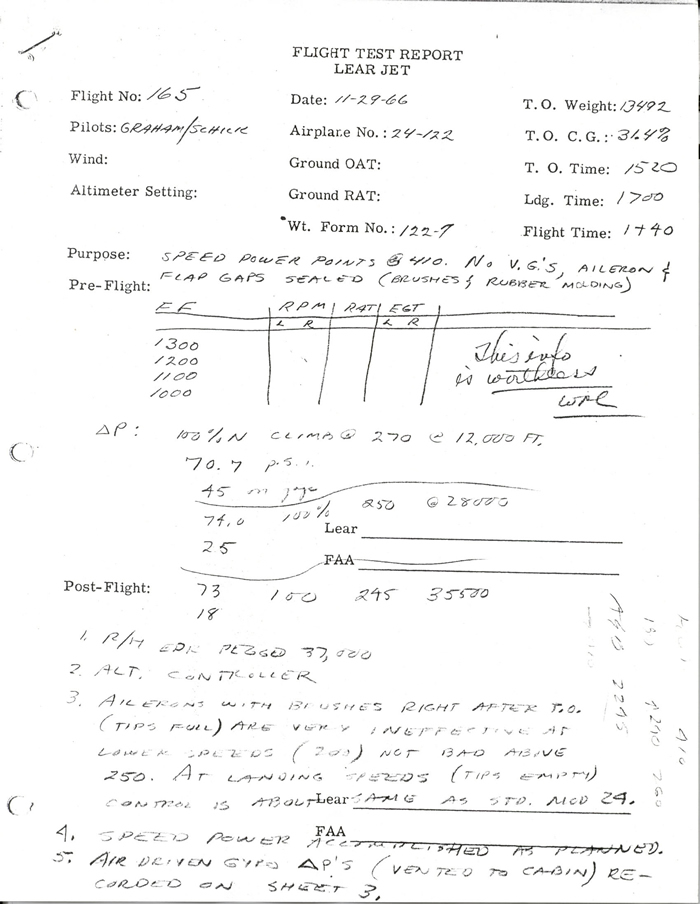 FLIGHT TEST REPORT
LEAR JET
Flight No: 165 Date: 11-29-66 T.O. Weight: 13492
Pilots: GRAHAM/SCHICK Airplane No.: 24-122 T.O. C.G.: 31.4%
Wind: Ground OAT: T. O. Time: 1520
Altimeter Setting: Ground RAT: Ldg. Time: 1700
Wt. Form No.: 122-7 Flight Time: 1+40
Purpose: SPEED POWER POINTS @ 410. NO V.G.'S, AILERON &
Pre-Flight: FLAP GAPS SEALED (BRUSHES & RUBBER MOLDING)
FF RPM RAT EGT
L R L R
1300
1200
1100
1000
This info
is worthless
ΔP: 100% N CLIMB @ 270 @ 12,000 FT.
70.7 p.s.i.
45
74.0 100% 250 @ 28000
Lear
25
FAA
Post-Flight: 73 100 245 35500
18
1. R/H PEGGED 37,000
2. ALT. CONTROLLER
3. AILERONS WITH BRUSHES RIGHT AFTER T.O.
(TIPS FULL) ARE VERY INEFFECTIVE AT
LOWER SPEEDS (200) NOT BAD ABOVE
250. AT LANDING SPEEDS (TIPS EMPTY)
CONTROL IS ABOUT Lear SAME AS STD. MOD 24.
FAA
4. SPEED POWER ACCOMPLISHED AS PLANNED.
5. AIR DRIVEN GYRO ΔP'S (VENTED TO CABIN) RE-
CORDED ON SHEET 3.